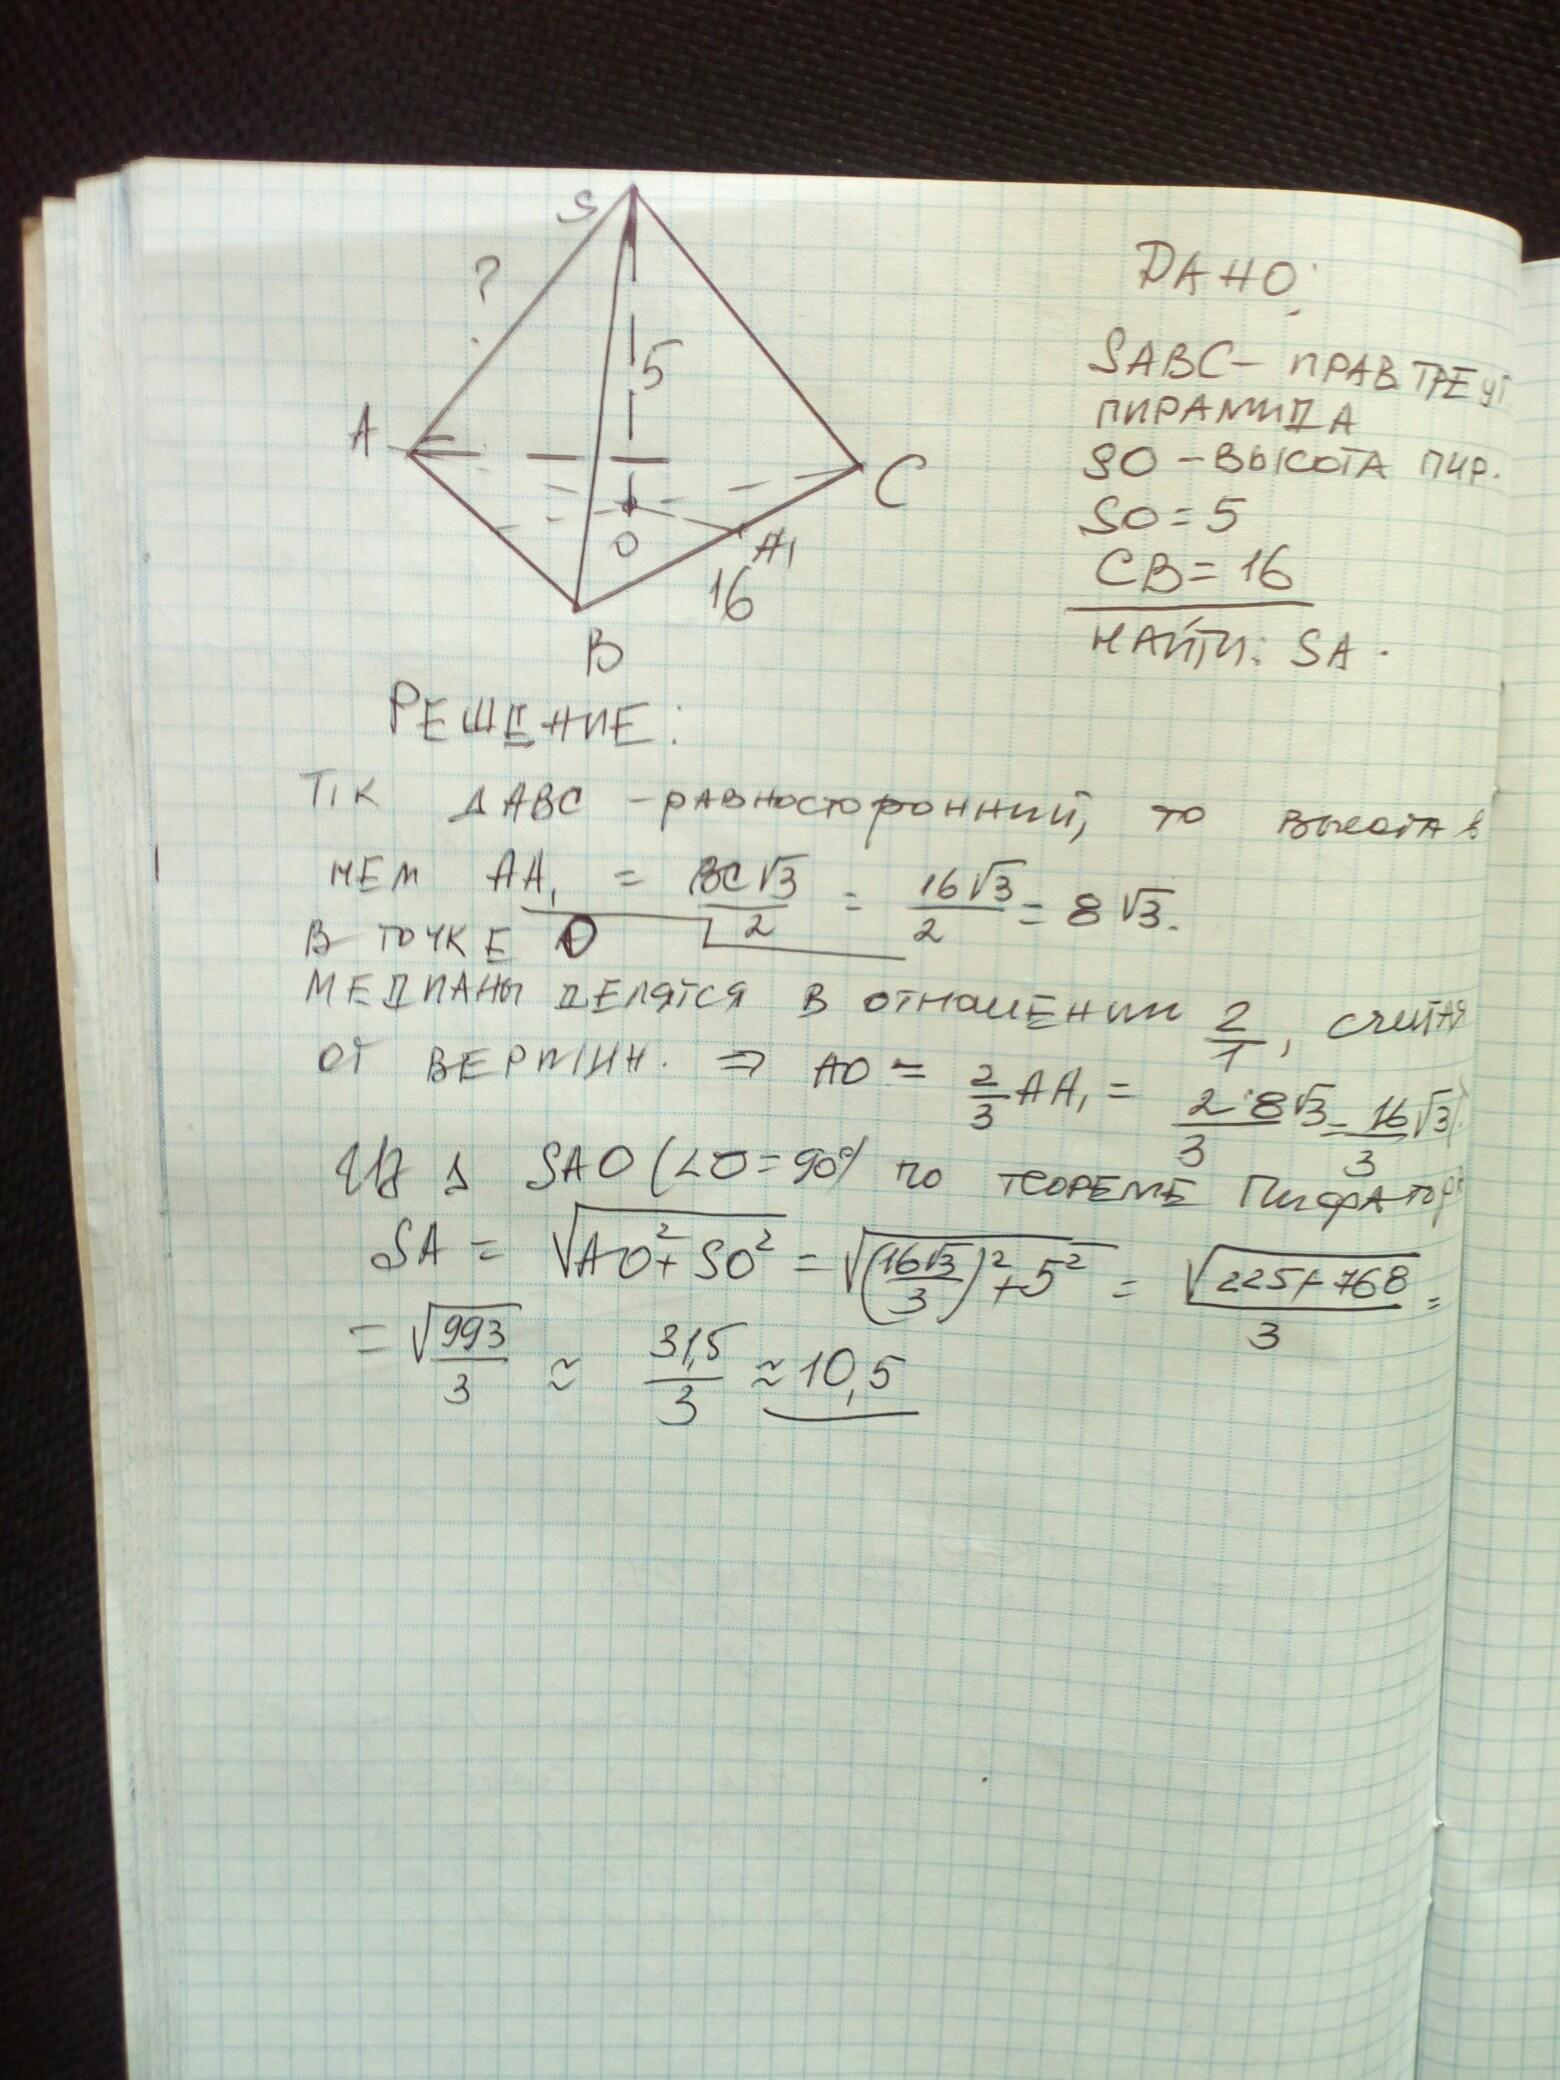 S
?
5
A
C
O
A₁
16
B
ДАНО:
SABC – ПРАВ ТРЕУГ
ПИРАМИДА
SO – ВЫСОТА ПИР.
SO = 5
CB = 16
НАЙТИ: SA.
РЕШЕНИЕ:
Т/К ΔABC – РАВНОСТОРОННИЙ, ТО ВЫСОТА В
НЕМ AA₁ = BC√3/2 = 16√3/2 = 8√3.
В ТОЧКЕ O
МЕДИАНЫ ДЕЛЯТСЯ В ОТНОШЕНИИ 2/1, СЧИТАЯ
ОТ ВЕРШИН. ⇒ AO = 2/3 AA₁ = 2·8√3/3 = 16√3/3
Из Δ SAO (∠O = 90°) ПО ТЕОРЕМЕ ПИФАГОРА
SA = √(AO² + SO²) = √((16√3/3)² + 5²) = √(225+768)/3 =
= √993/3 ≈ 31,5/3 ≈ 10,5